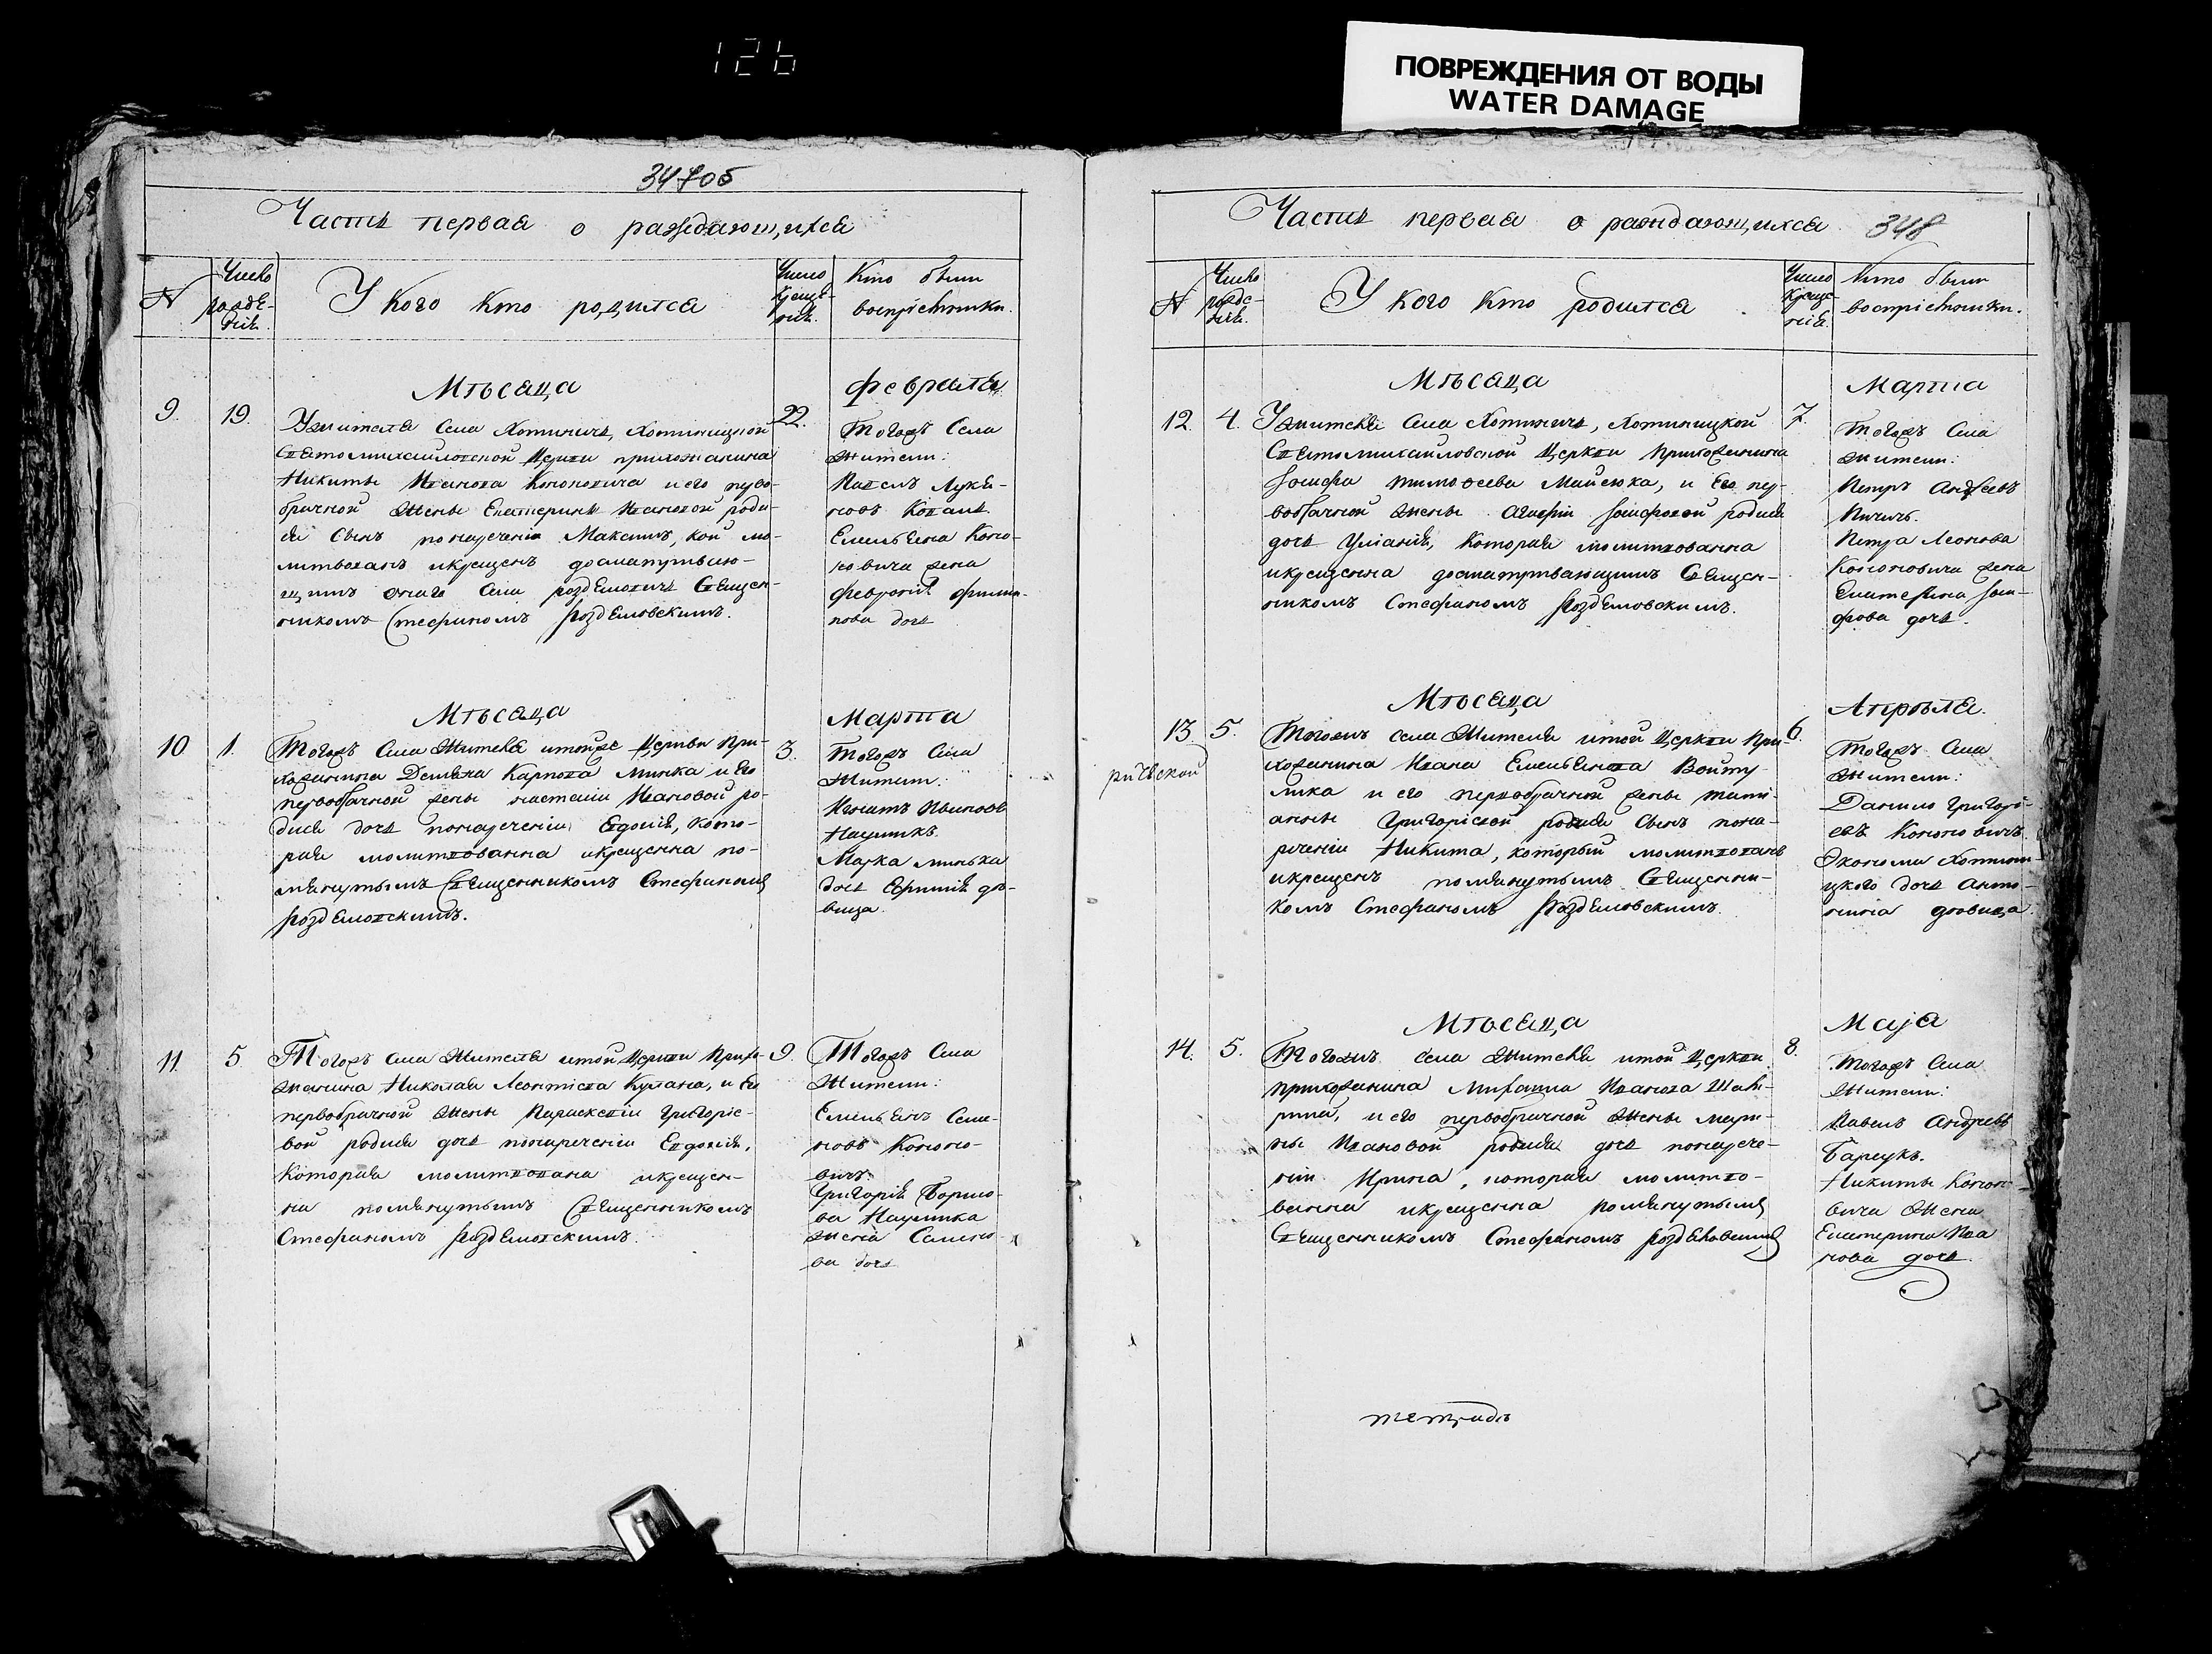 126
ПОВРЕЖДЕНИЯ ОТ ВОДЫ
WATER DAMAGE
347об
Часть первая о раждающихся
N
Число рожде-
нія.
У кого кто родился
Число креще-
нія.
Кто были
воспріемники.
Мѣсяца
февраля
9.
19.
У жителя Села Хотиничъ, Хотиницкой
Святомихайловской Церкви прихожанина
Никиты Иванова Кононовича и его перво-
брачной Жены Екатерины Ивановой роди-
ся Сынъ понареченіи Максимъ, кой мо-
литвованъ икрещенъ досматрываю-
щимъ онаго Села Священ-
никомъ Стефаномъ
22.
Тогожъ Села
Жители:
Павелъ Лукя-
новъ
Емельяна Коно-
новича жена
Февронія Филип-
пова дочь
Мѣсяца
Марта
10
1.
Тогожъ Села Жителя итойже Церкви при-
хожанина Демяна Карпова Минка и его
первобрачной жены Настасіи Ивановой ро-
дися дочь понареченіи Евдокія, кото-
рая молитвованна икрещенна по-
мянутымъ Священникомъ Стефаномъ
3.
Тогожъ Села
Жители:
Игнатъ Ивановъ
Наумикъ.
Марка минька
дочь Ефимія дѣ-
вица.
11.
5
Тогожъ Села Жителя итой Церкви Прихо-
жанина Николая Леонтіева и Его
первобрачной Жены Параскевіи Григоріе-
вой родися дочь понареченіи Евдокія,
Которая молитвована икрещен-
на помянутымъ Священникомъ
Стефаномъ
9.
Тогожъ Села
Жители:
Емельянъ Семе-
новъ Кононо-
вичъ.
Григорія Борисо-
ва Наумика
жена
ва дочь
Часть первая о раждающихся
348
N
Число рожде-
нія.
У кого кто родился
Число креще-
нія.
Кто были
воспріемники.
Мѣсяца
Марта
12.
4.
У жителя Села Хотиничъ, Хотиницкой
Святомихайловской Церкви прихожанина
Іосифа тимофеева и Его пер-
вобрачной Жены Агафіи Іосифовой родися
дочь Уліанія, Которая молитвованна
икрещенна досматрывающимъ Священ-
никомъ Стефаномъ
7.
Тогожъ Села
жители:
Петръ Андреевъ
Петра Леонова
Кононовича жена
Екатерина Іоси-
фова дочь.
Мѣсяца
Апрѣля.
13.
5.
Тогожъ села Жителя итой Церкви При-
хожанина Ивана Емельянова Войту-
лика и его первобрачной жены тати-
анны Григоріевой родися Сынъ пона-
реченіи Никита, который молитвованъ
икрещенъ помянутымъ Священни-
комъ Стефаномъ
6.
Тогожъ Села
жители:
Данило Григорі-
евъ Кононовичъ
Экономи Хотини-
цкого дочь Анто-
нина дѣвица.
Мѣсяца
Маја
14.
5.
Тогожъ села Жителя итой Церкви
прихожанина Михаила Иванова
и его первобрачной Жены мари-
ны Ивановой родися дочь понарече-
ніи Ирина, которая молитво-
ванна икрещенна помянутымъ
Священникомъ Стефаномъ
8.
Тогожъ Села
Жители:
Павелъ Андреевъ
Барсукъ.
Никиты Кононо-
вича Жена
Екатерина Ива
нова дочь.
тетрадь